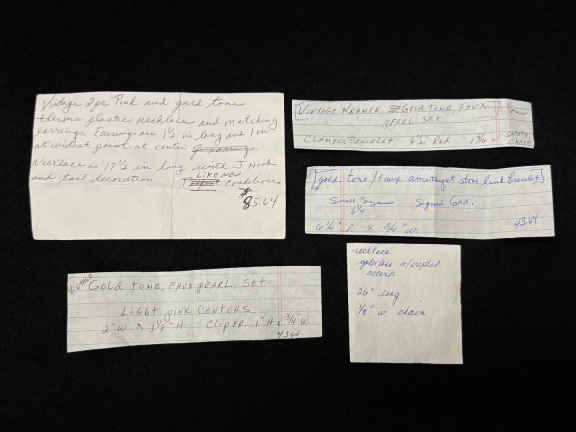 Vintage 2 pc Pink and gold tone
thermo plastic necklace and matching
earrings. Earrings are 1 1/2 in long and 1 in
at widest point at center
Necklace is 17 1/2 in long with J Hook
and tail decoration
LIKE NEW
Condition
$85.64
VINTAGE KRAMER GOLD TONE, FAUX
PEARL, SET
CLAMPER BRACELET 6 1/2 Rod 1 3/4
SAFETY
CHAIN
gold tone/Faux amethyst stone link Bracelet
Small Size Signed
6 3/4
6 1/2" L x 3/4" w.
43.64
GOLD TONE, FAUX PEARL, SET
LIGHT PINK CENTERS
2" W x 1 1/4" H CLIPER 1" H x 3/4" W
43.64
necklace
goldtone w/crystal
accents
26" long
1/8" w. chain